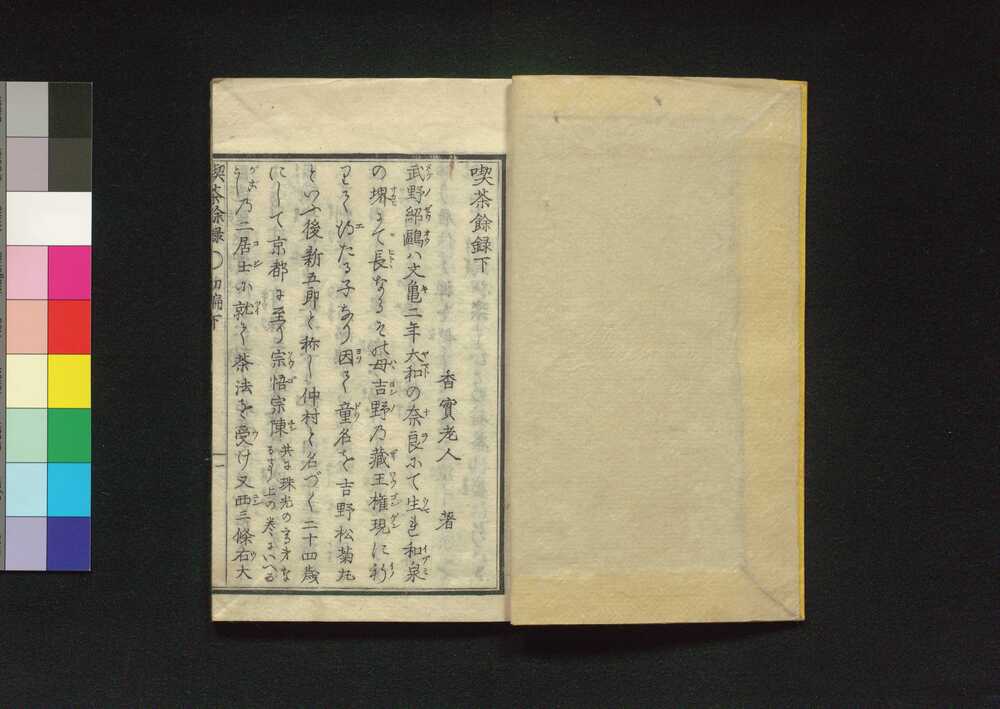 喫茶餘録下
香實老人 著
武野紹鷗ハ文亀二年大和の奈良にて生れ和泉
の堺にて長なるその母吉野乃藏王権現に祈
りて得たる子なり因て童名を吉野松菊丸
といふ後新五郎と称し仲村と名づく二十四歳
にして京都に至り宗悟宗陳 共に珠光の高弟な るよし上の巻にいへる
乃二居士に就て茶法を受け又西三條右大
喫茶餘録 初編下 一